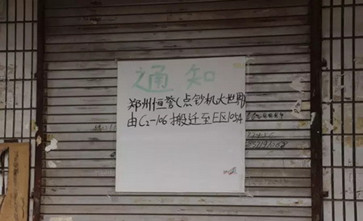 通知
郑州恒誉(点钞机大世界)
由C2-106搬迁至E区1024